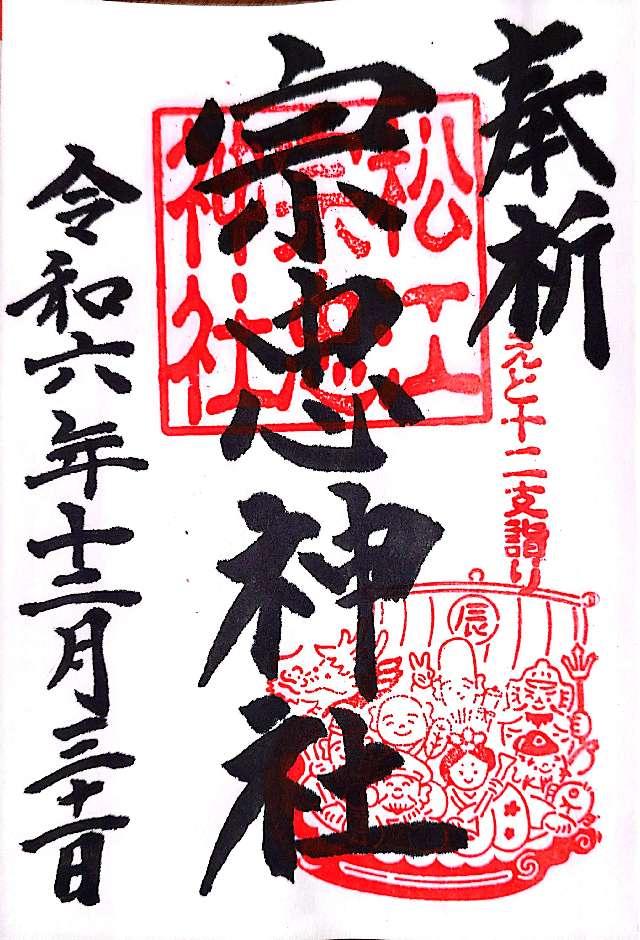 奉祈
えと十二支詣り
辰
松江
宗忠
神社
宗忠神社
令和六年十二月三十一日